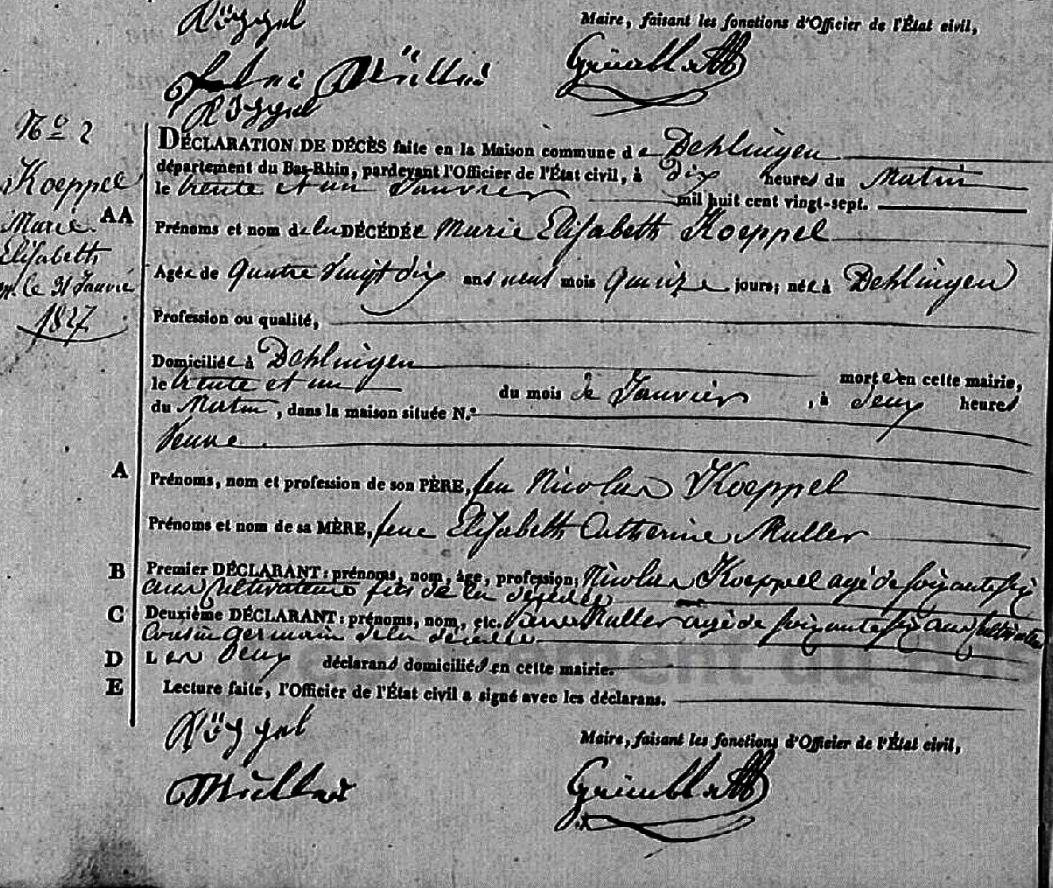 Köppel
Maire, faisant les fonctions d'Officier de l'État civil,
Müller
Köppel
N.º 2
Koeppel
Marie
Elisabeth
le 31 Janvier
1827
DÉCLARATION DE DÉCÈS faite en la Maison commune de Dehlingen
département du Bas-Rhin, pardevant l'Officier de l'État civil, à dix heures du Matin
le trente et un Janvier mil huit cent vingt-sept.
AA Prénoms et nom de la DÉCÉDÉE Marie Elisabeth Koeppel
Agée de Quatre vingt dix ans neuf mois Quinze jours; née à Dehlingen
Profession ou qualité,
Domiciliée à Dehlingen morte en cette mairie,
le trente et un du mois de Janvier, à deux heures
du Matin, dans la maison située N.º
Veuve
A Prénoms, nom et profession de son PÈRE, feu Nicolas Koeppel
Prénoms et nom de sa MÈRE, feue Elisabeth Catherine Muller
B Premier DÉCLARANT: prénoms, nom, âge, profession; Nicolas Koeppel agé de soixante six
ans Cultivateur fils de la décédée
C Deuxième DÉCLARANT: prénoms, nom, etc. Muller agé de soixante six ans Cultivateur
Cousin germain de la décédée
D Les deux déclarans domiciliés en cette mairie.
E Lecture faite, l'Officier de l'État civil a signé avec les déclarans.
Köppel
Maire, faisant les fonctions d'Officier de l'État civil,
Müller